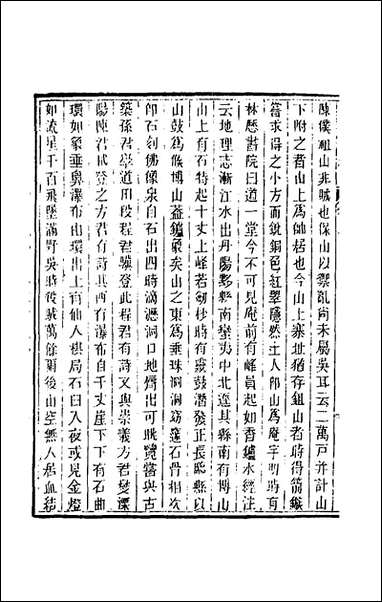 陳僕祖山非賊也保山以禦亂尚未屬吳耳云二萬戶并計山
下附之者山上爲帥居也今山上寨址猶存鉏山者時得箭鏃
嘗求得之小方而銳銅色紅翠隱然土人卽山爲庵字明時有
林歷書院曰道一堂今不可見庵前有峰員起如香鑪水經注
云地理志漸江水出丹陽黟縣南蠻夷中北逕其縣南有博山
山上有石特起十丈上峰若劒杪時有靈鼓潛發正長臨縣以
山鼓爲候博山蓋鑪象矣山之東爲垂珠洞洞竅蓮石骨相次
仰石刻佛像泉自石出四時滴瀝洞口地僧出可眺覽嘗與古
築孫君學道田段程君驥登此程君有詩文與崇義方君夔深
陽陳君成登之方君有詩其西有瀑布自千丈崖下下有石曲
環如象垂鼻瀑布由環出上有仙人棋局石臼入夜或見金燈
如流星千百飛墜滿野吳時後賊萬餘爾後山空無人居血結